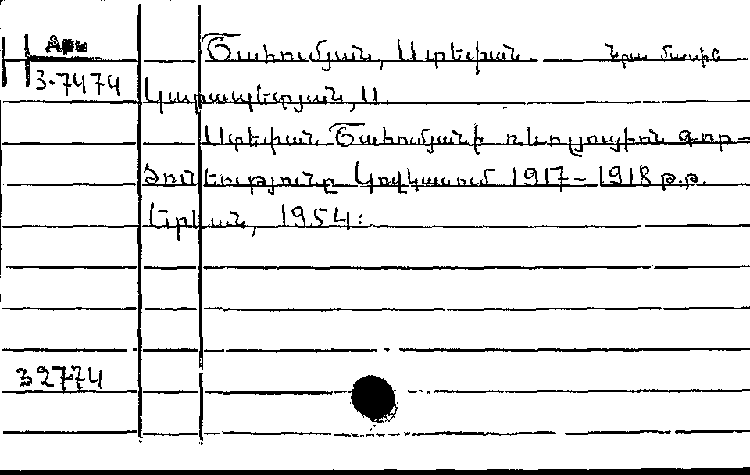 Արս Շահումյան, Ստեփան նրա մասին
3-7474
Կարապետյան, Ս.
Ստեփան Շահումյանի ռևոլյուցիոն գոր-
ծունեությունը Կովկասում 1917-1918 թ.թ.
Երևան, 1954:
32774